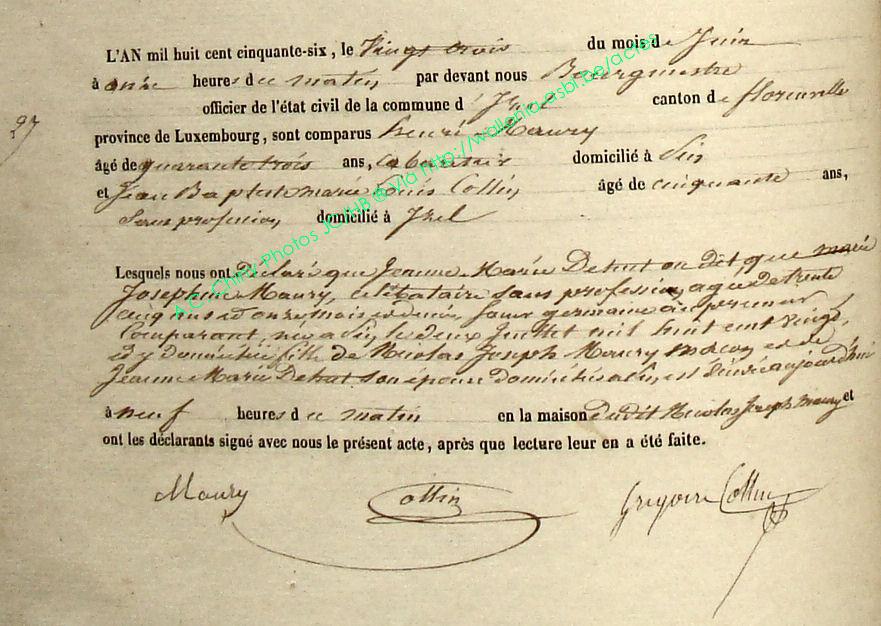 L'AN mil huit cent cinquante-six, le Vingt trois du mois de Juin
à onze heures du matin, par devant nous Bourgmestre
officier de l'état civil de la commune d'Izel canton de florenville
27
province de Luxembourg, sont comparus henri Maury
âgé de quarante trois ans, domicilié à
et Jean Baptiste marie Louis Collin, âgé de cinquante ans,
Sans profession, domicilié à Izel
Lesquels nous ont Declaré que Jeanne Marie on dit que marie
Josephine Maury, celibataire sans profession, agée de trente
cinq ans et onze mois et demi, Sœur germaine au premier
Comparant, née a le deux Juillet mil huit cent vingt,
et y Domiciliée fille de Nicolas Joseph Maury et de
Jeanne Marie son épouse Domiciliés est Décédée aujourd'hui
à neuf heures du matin en la maison dudit Nicolas Joseph Maury et
ont les déclarants signé avec nous le présent acte, après que lecture leur en a été faite.
Maury Collin Grégoire Collin
A.C. Chiny Photos JCl/HB ® via http://wallonia.asbl.be/actes